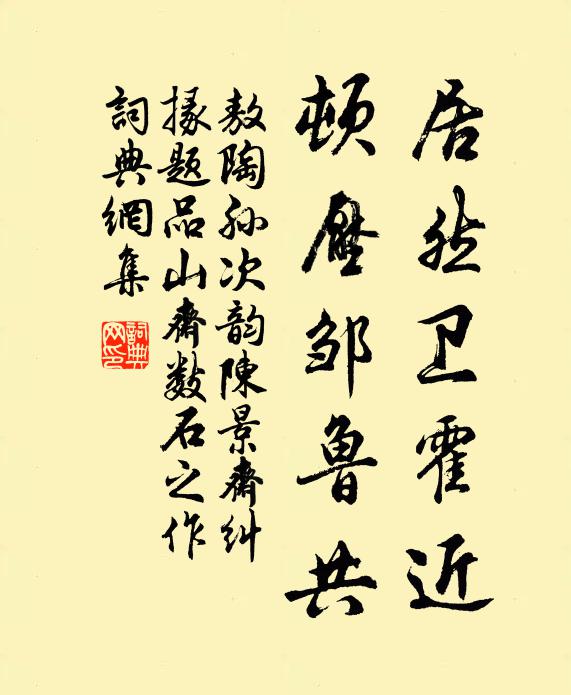 居然卫霍近
顿壓邹魯共
敖陶孙次韵陳景齋糾
掾题品山齋数石之作
詞典網集
詞典网印